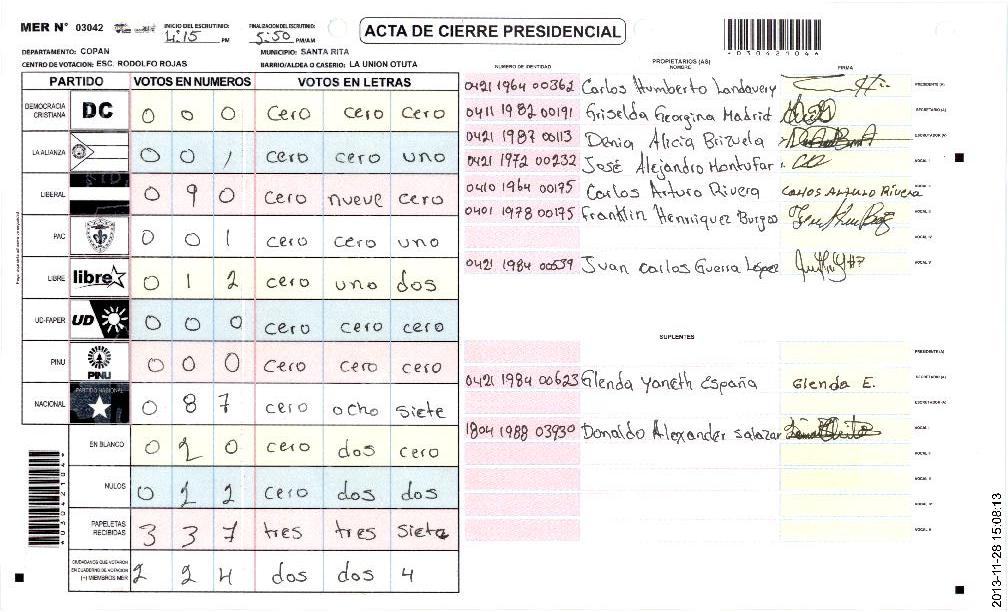 MER N° 03042 INICIO DEL ESCRUTINIO: 4:15 PM FINALIZACION DEL ESCRUTINIO: 5:50 PM/AM ACTA DE CIERRE PRESIDENCIAL
DEPARTAMENTO: COPAN MUNICIPIO: SANTA RITA
CENTRO DE VOTACION: ESC. RODOLFO ROJAS BARRIO/ALDEA O CASERIO: LA UNION OTUTA
PARTIDO VOTOS EN NUMEROS VOTOS EN LETRAS
DEMOCRACIA CRISTIANA DC 0 0 0 cero cero cero
LA ALIANZA 0 0 1 cero cero uno
LIBERAL 0 9 0 cero nueve cero
PAC 0 0 1 cero cero uno
LIBRE libre 0 1 2 cero uno dos
UD-FAPER UD 0 0 0 cero cero cero
PINU PINU 0 0 0 cero cero cero
NACIONAL PARTIDO NACIONAL 0 8 7 cero ocho siete
EN BLANCO 0 2 0 cero dos cero
NULOS 0 2 2 cero dos dos
PAPELETAS RECIBIDAS 3 3 7 tres tres siete
CIUDADANOS QUE VOTARON EN CUADERNO DE VOTACION (+) MIEMBROS MER 2 2 4 dos dos 4
NUMERO DE IDENTIDAD PROPIETARIOS (AS) NOMBRE FIRMA
0421 1964 00362 Carlos Humberto Landavery PRESIDENTE (A)
0411 1982 00191 Griselda Georgina Madrid SECRETARIO (A)
0421 1987 00113 Denia Alicia Brizuela ESCRUTADOR (A)
0421 1972 00232 José Alejandro Montufar VOCAL I
0410 1964 00175 Carlos Arturo Rivera Carlos Arturo Rivera
0401 1978 00175 Franklin Henriquez Burgos VOCAL III
VOCAL IV
0421 1984 00539 Juan Carlos Guerra López VOCAL V
SUPLENTES
PRESIDENTE (A)
0421 1984 00623 Glenda Yaneth España Glenda E. SECRETARIO (A)
ESCRUTADOR (A)
1804 1988 03930 Donaldo Alexander Salazar VOCAL I
VOCAL II
VOCAL III
VOCAL IV
VOCAL V
2013-11-28 15:08:13